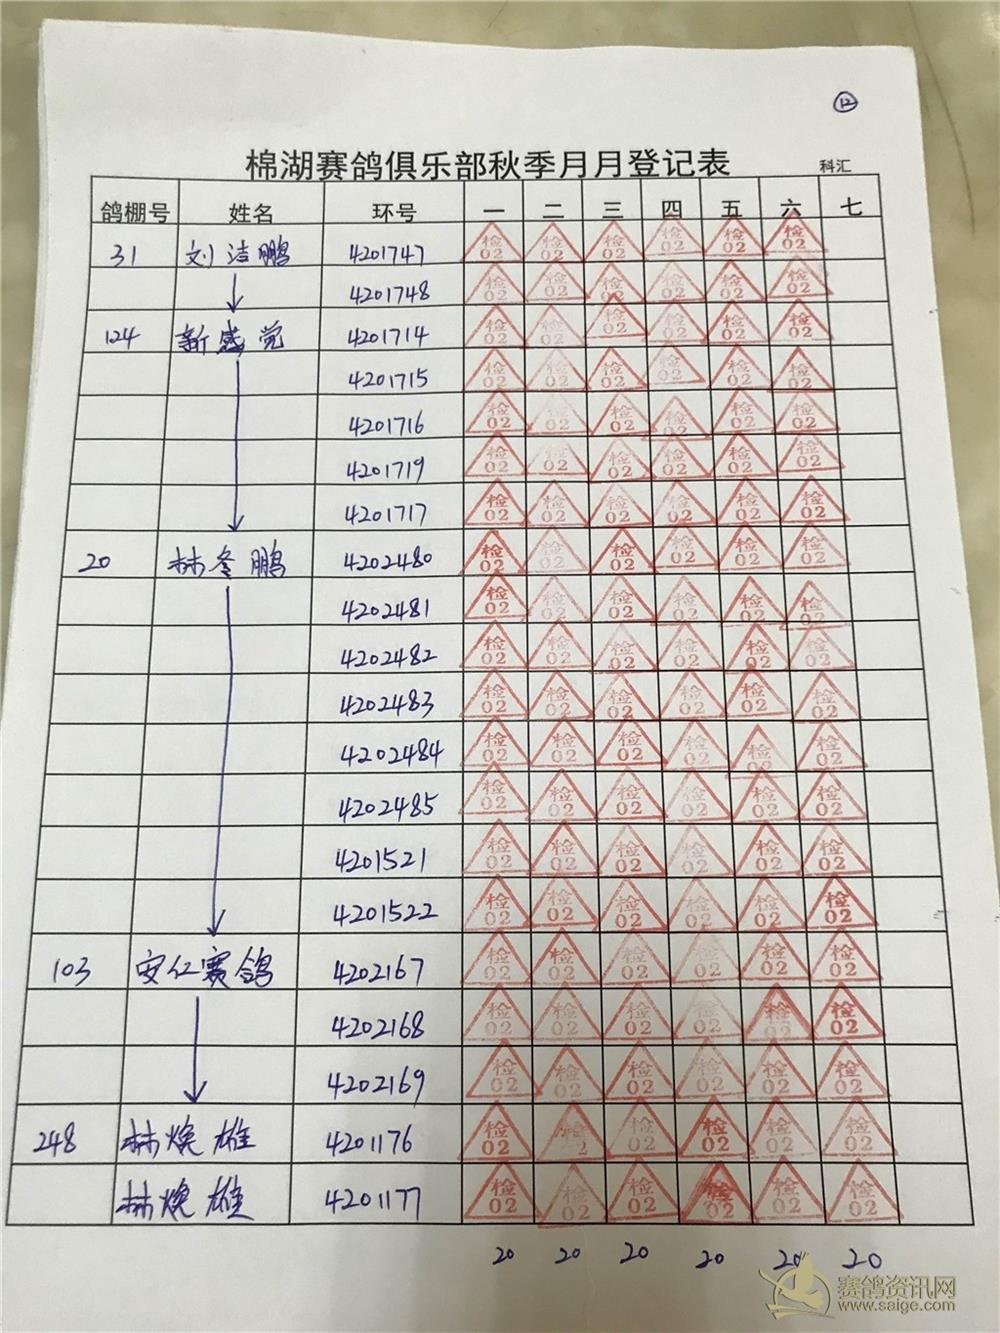 ⑫
棉湖赛鸽俱乐部秋季月月登记表 科汇
鸽棚号 姓名 环号 一 二 三 四 五 六 七
31 刘洁鹏 4201747 检02 检02 检02 检02 检02 检02
4201748 检02 检02 检02 检02 检02 检02
124 新感觉 4201714 检02 检02 检02 检02 检02 检02
4201715 检02 检02 检02 检02 检02 检02
4201716 检02 检02 检02 检02 检02 检02
4201719 检02 检02 检02 检02 检02 检02
4201717 检02 检02 检02 检02 检02 检02
20 林冬鹏 4202480 检02 检02 检02 检02 检02 检02
4202481 检02 检02 检02 检02 检02 检02
4202482 检02 检02 检02 检02 检02 检02
4202483 检02 检02 检02 检02 检02 检02
4202484 检02 检02 检02 检02 检02 检02
4202485 检02 检02 检02 检02 检02 检02
4201521 检02 检02 检02 检02 检02 检02
4201522 检02 检02 检02 检02 检02 检02
103 安仁赛鸽 4202167 检02 检02 检02 检02 检02 检02
4202168 检02 检02 检02 检02 检02 检02
4202169 检02 检02 检02 检02 检02 检02
248 林焕雄 4201176 检02 检2 检02 检02 检02 检02
林焕雄 4201177 检02 检02 检02 检02 检02 检02
20 20 20 20 20 20
赛鸽资讯网
www.saige.com